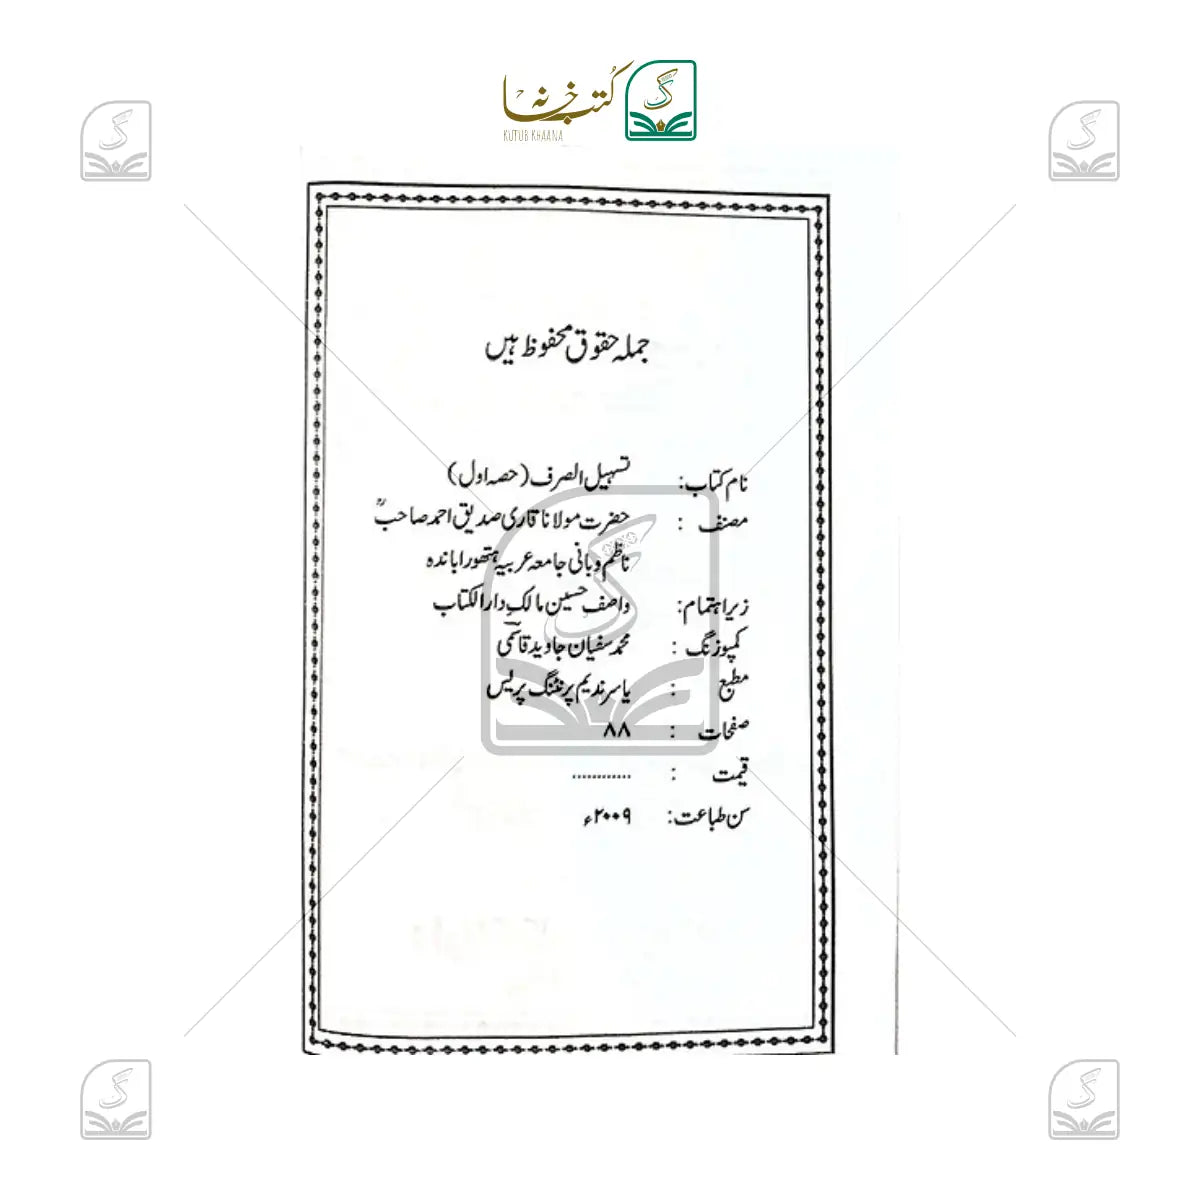 کتب خانہ
KUTUB KHAANA
جملہ حقوق محفوظ ہیں
نام کتاب: تسہیل الصرف (حصہ اول)
مصنف : حضرت مولانا قاری صدیق احمد صاحبؒ
ناظم و بانی جامعہ عربیہ ہتھورا باندہ
زیر اہتمام: واصف حسین مالک دار الکتاب
کمپوزنگ : محمد سفیان جاوید قاسمی
مطبع : یاسر ندیم پرنٹنگ پریس
صفحات : ۸۸
قیمت : ............
سن طباعت: ۲۰۰۹ء